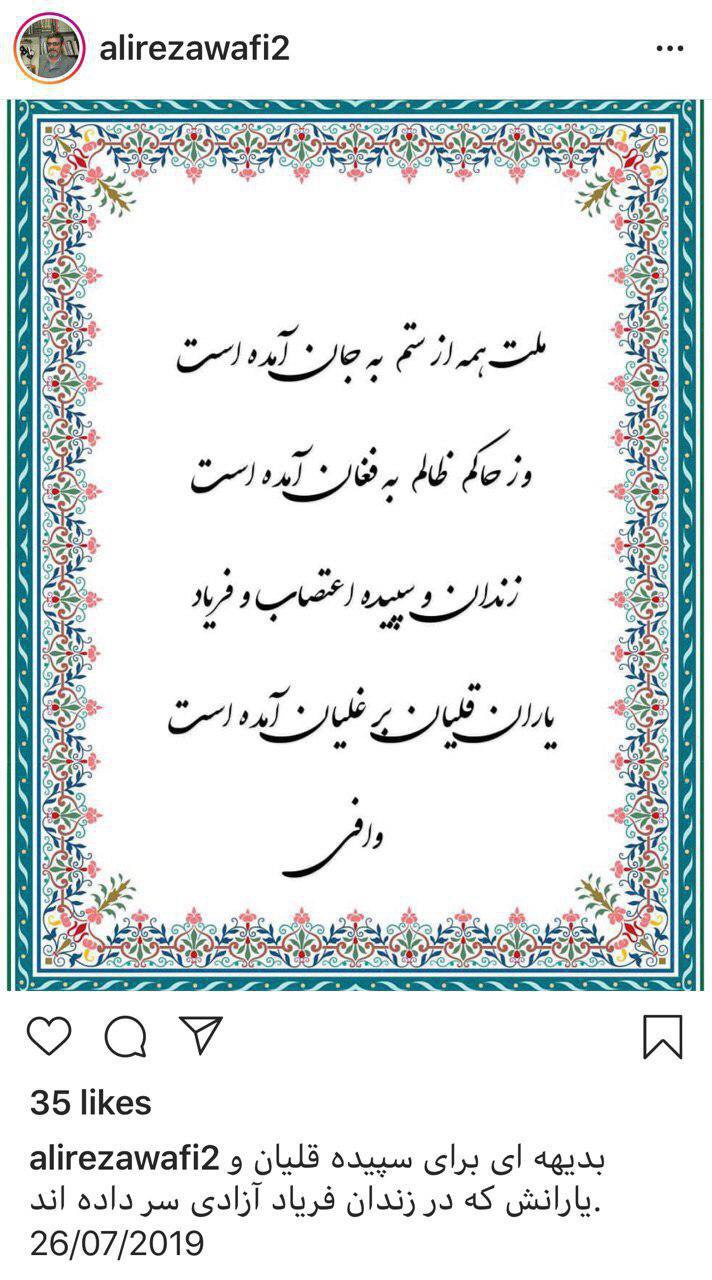 alirezawafi2
ملت همه از ستم به جان آمده است
وز حاکم ظالم به فغان آمده است
زندان و سپیده اعتصاب و فریاد
یاران قلیان بر غلیان آمده است
وافی
35 likes
alirezawafi2 بدیهه ای برای سپیده قلیان و
یارانش که در زندان فریاد آزادی سر داده اند.
26/07/2019